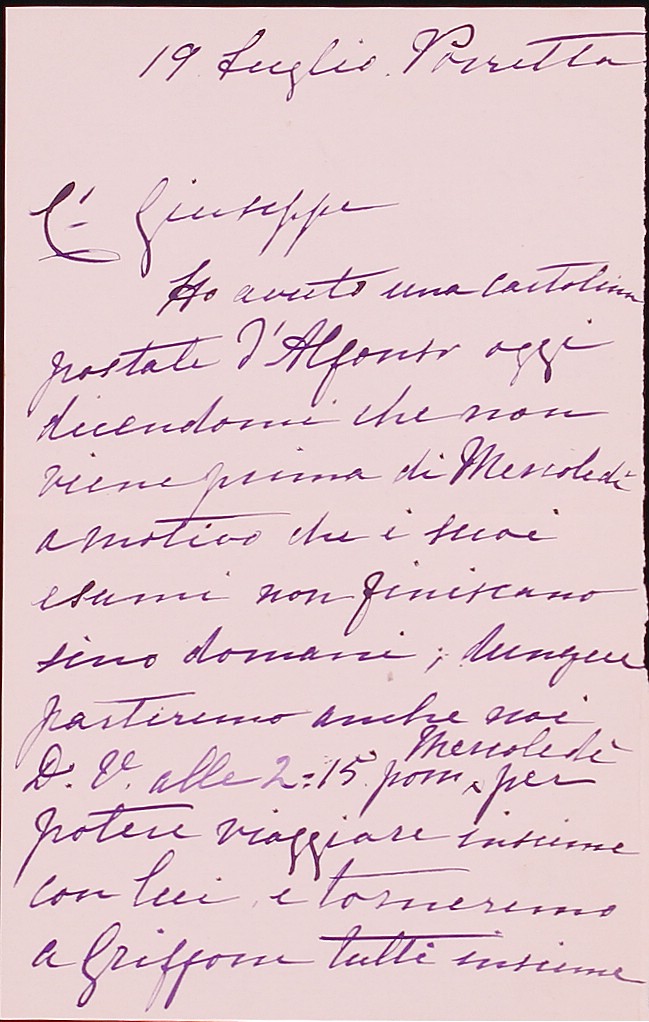 19 Luglio. Porretta
C.º Giuseppe
Ho avuto una cartolina
postale d'Alfonso oggi
dicendomi che non
viene prima di Mercoledì
a motivo che i suoi
esami non finiscano
sino domani; dunque
partiremo anche noi
Mercoledì
D. V. alle 2=15 pom, per
potere viaggiare insieme
con lui e torneremo
a Griffone tutti insieme